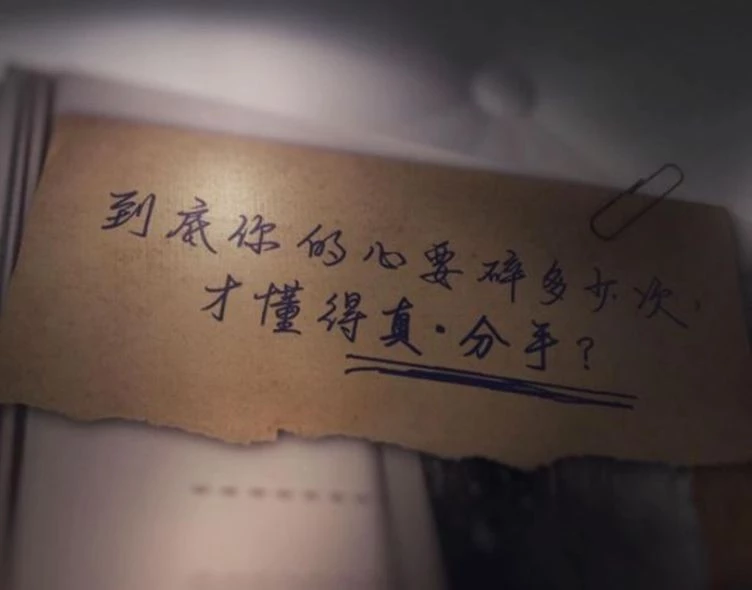 到底你的心要碎多少次
才懂得真·分手?